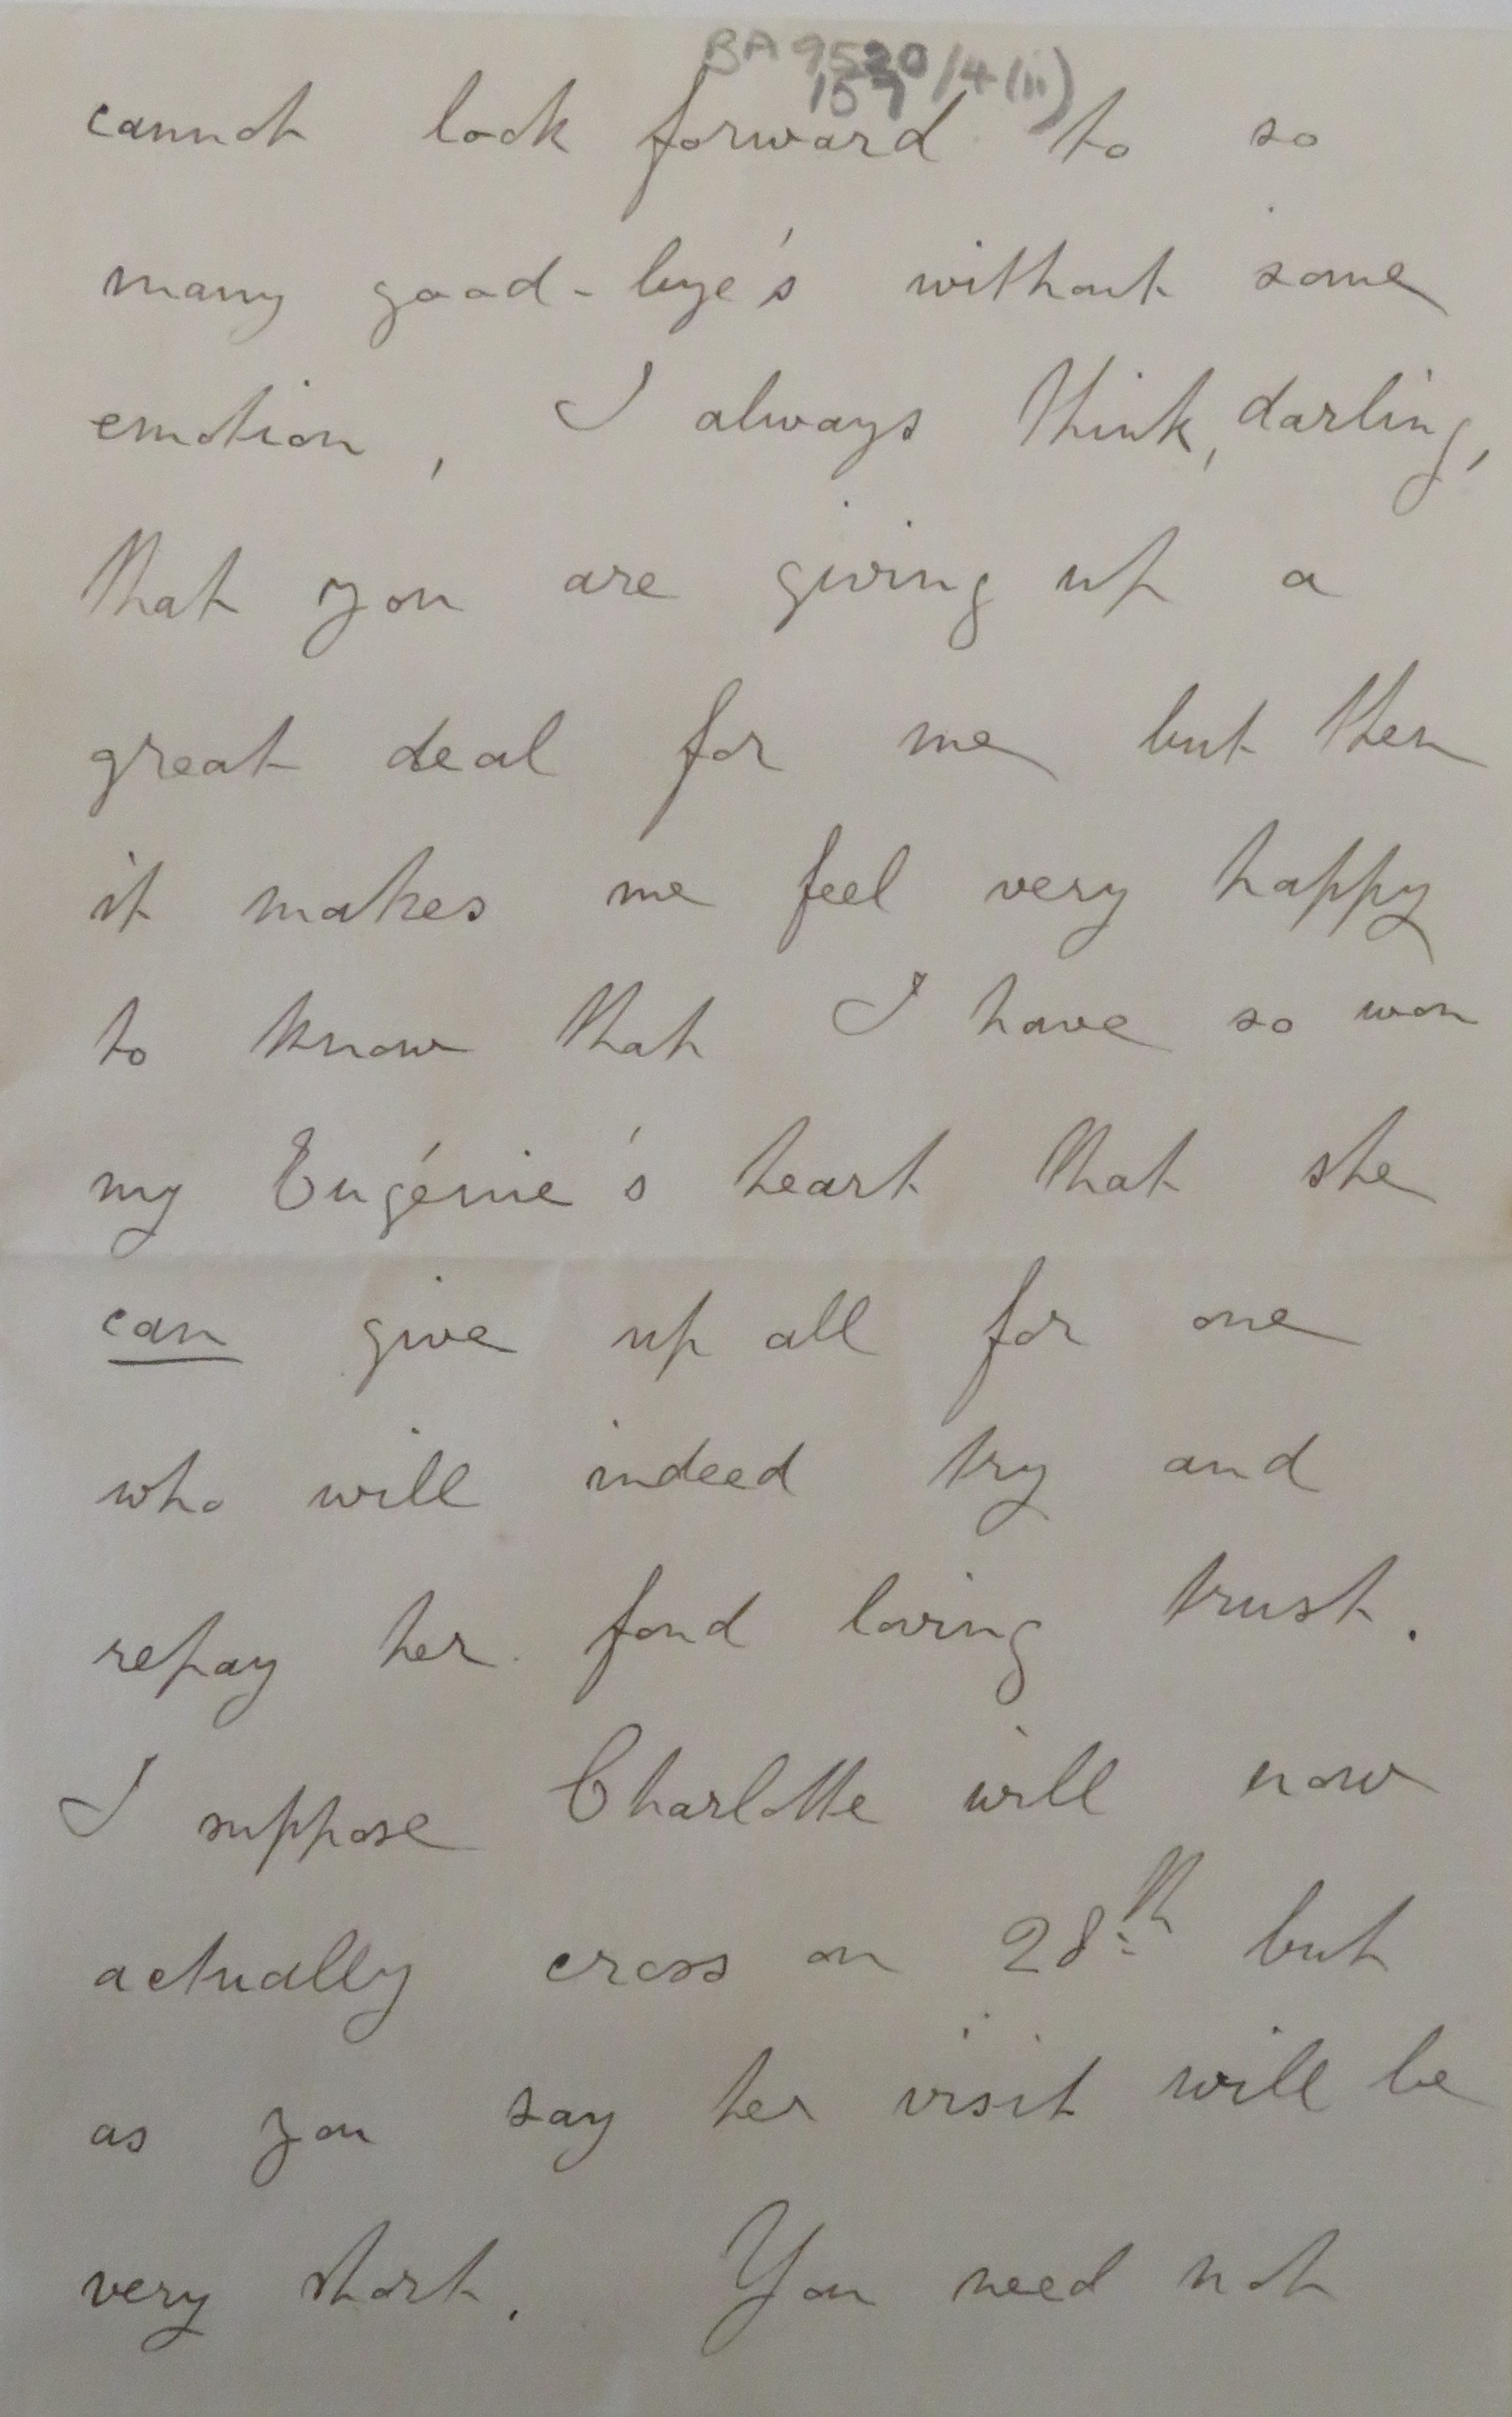 BA 9520/4(ii)
107
cannot look forward to so
many good-bye's without some
emotion, I always think, darling,
that you are giving up a
great deal for me but then
it makes me feel very happy
to know that I have so won
my Eugénie's heart that she
can give up all for one
who will indeed try and
repay her fond loving trust.
I suppose Charlotte will now
actually cross on 28th but
as you say her visit will be
very short. You need not